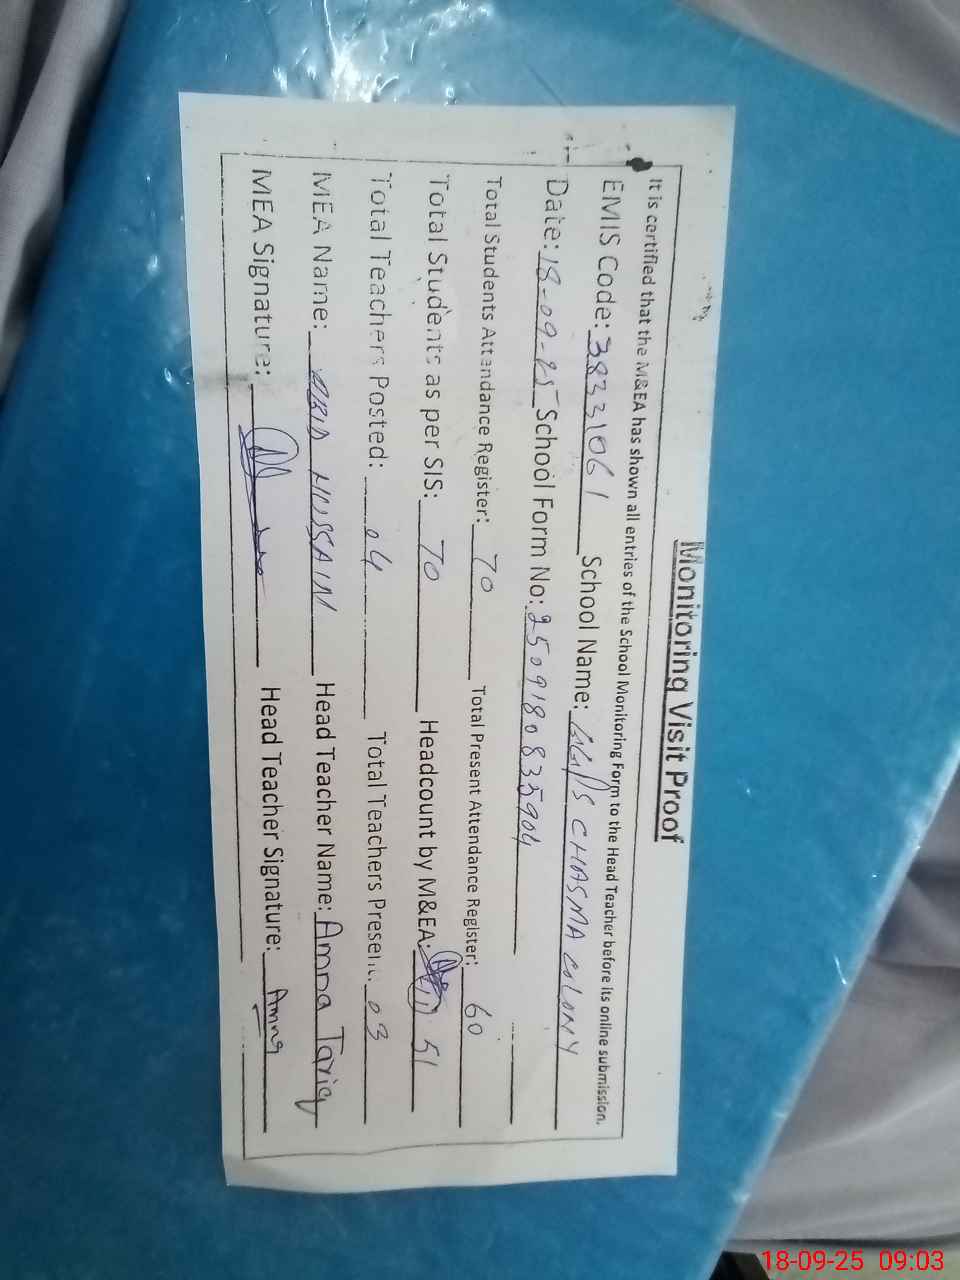 Monitoring Visit Proof
It is certified that the M&EA has shown all entries of the School Monitoring Form to the Head Teacher before its online submission.
EMIS Code: 38331061 School Name: GG/S CHASMA COLONY
Date: 18-09-25 School Form No: 2509180835904
Total Students Attendance Register: 70 Total Present Attendance Register: 60
Total Students as per SIS: 70 Headcount by M&EA: 51
Total Teachers Posted: 04 Total Teachers Present: 03
MEA Name: ABID HUSSAIN Head Teacher Name: Amna Tariq
MEA Signature: Head Teacher Signature: Amna
18-09-25 09:03